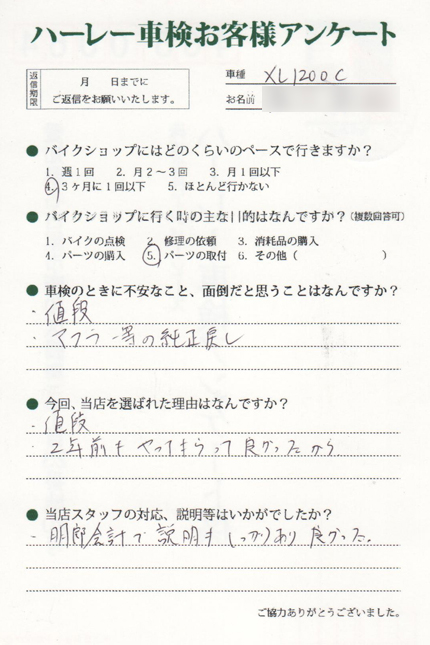 ハーレー車検お客様アンケート
返信期限
月 日までに
ご返信をお願いいたします。
車種 XL1200C
お名前
● バイクショップにはどのくらいのペースで行きますか？
1. 週1回 2. 月2～3回 3. 月1回以下
4. 3ヶ月に1回以下 5. ほとんど行かない
● バイクショップに行く時の主な目的はなんですか？（複数回答可）
1. バイクの点検 2. 修理の依頼 3. 消耗品の購入
4. パーツの購入 5. パーツの取付 6. その他（ ）
● 車検のときに不安なこと、面倒だと思うことはなんですか？
・値段
・マフラー等の純正戻し
● 今回、当店を選ばれた理由はなんですか？
・値段
・2年前もやってもらって良かったから
● 当店スタッフの対応、説明等はいかがでしたか？
・明郎会計で説明もしっかりあり良かった。
ご協力ありがとうございました。